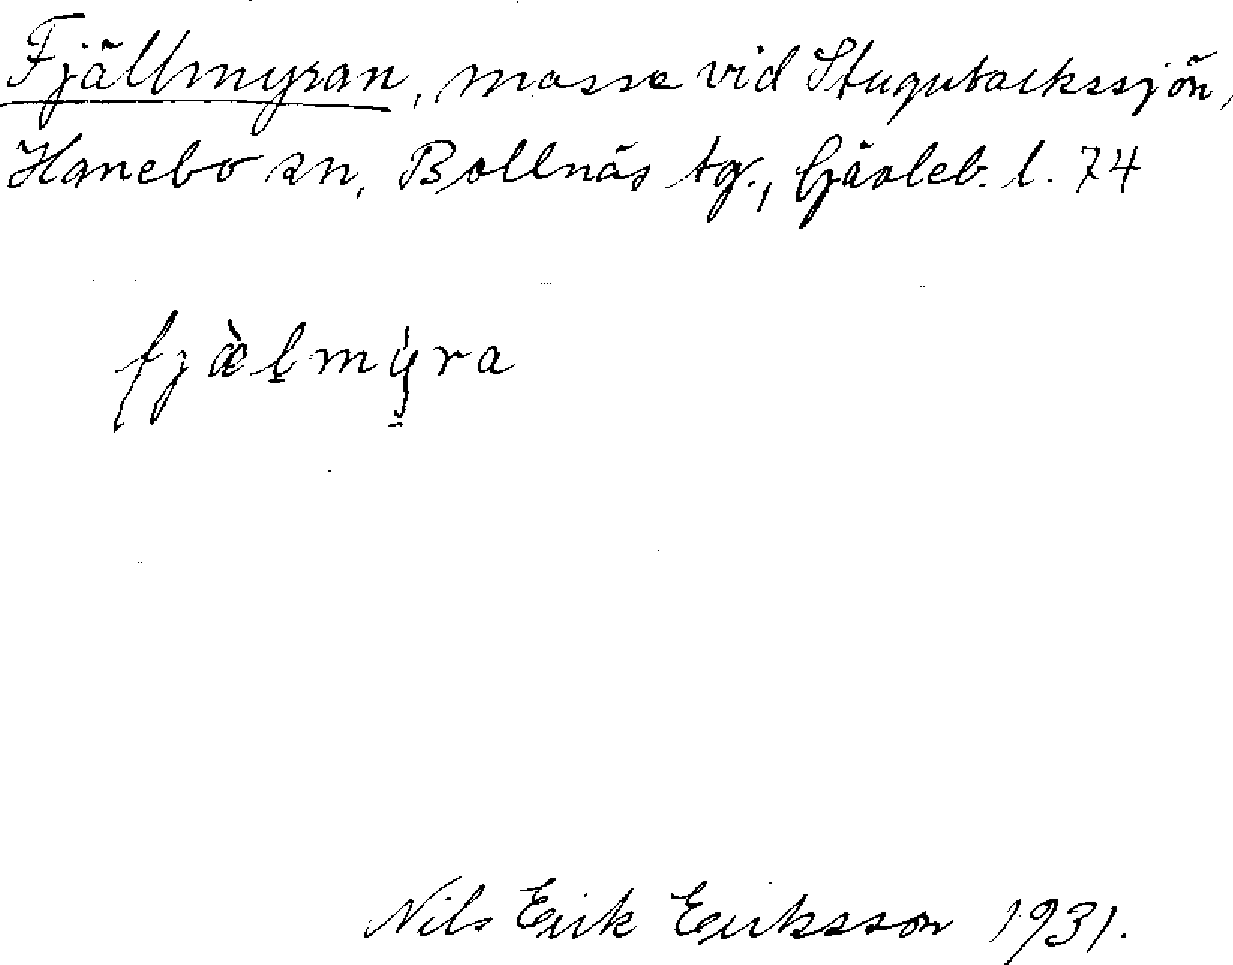 Fjällmyran, mosse vid Stugubackssjön,
Hanebo sn, Bollnäs tg., Gävleb. l. 74
fjæ̀l̠mẏra
Nils Erik Eriksson 1931.